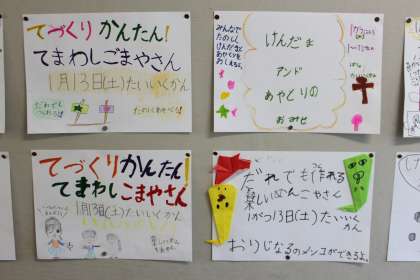 てづくり かんたん!
てまわしごまやさん
1月13日(土)たいいくかん
だれでも
つくれるよ
たのしくあそべるよ
みんなで
たのしく
けんだまと
あやとりを
しよう。
けんだま
アンド
あやとりの
おみせ
1がつ13にち
たいいくかん
てづくり かんたん!
てまわしごまやさん
1月13日(土)たいいくかん
だれでも作れる
楽しいめんこやさん
1がつ13日(土)たいいく
かん
おりじなるのメンコができるよ。